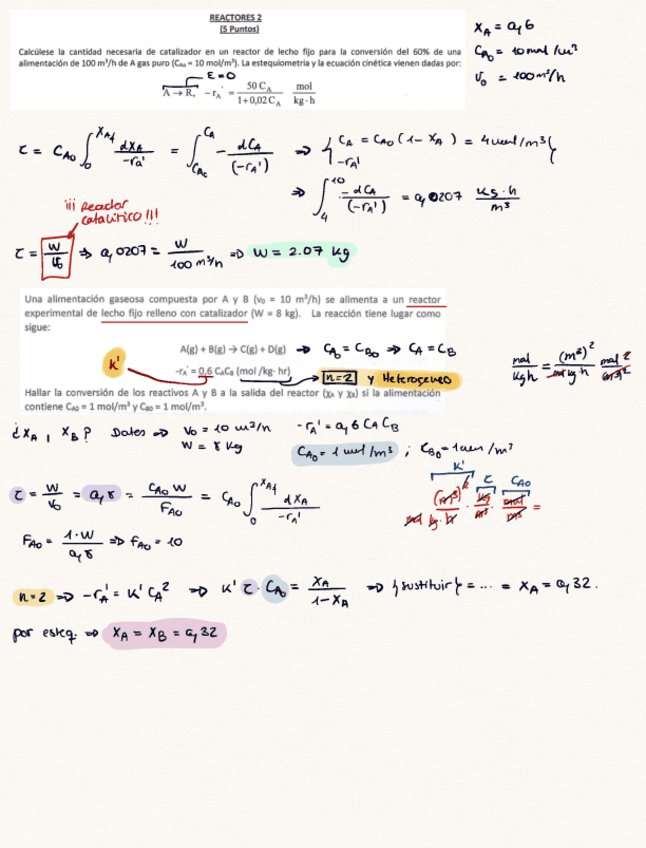 REACTORES 2
(5 Puntos)
Calcúlese la cantidad necesaria de catalizador en un reactor de lecho fijo para la conversión del 60% de una
alimentación de 100 m³/h de A gas puro (C_A0 = 10 mol/m³). La estequiometria y la ecuación cinética vienen dadas por:
ε=0
A → R, -r_A' = 50 C_A / (1+0,02 C_A) mol / (kg·h)
X_A = 0,6
C_A0 = 10 mol/m³
V_0 = 100 m³/h
τ = C_A0 ∫_0^{X_Af} dX_A / -r_A' = ∫_{C_A0}^{C_A} - dC_A / (-r_A') ⇒ { C_A = C_A0 (1 - X_A) = 4 mol/m³ {
-r_A'
⇒ ∫_4^10 -dC_A / (-r_A') = 0,0207 kg·h / m³
¡¡¡ Reactor
catalítico !!!
τ = W / V_0 ⇒ 0,0207 = W / 100 m³/h ⇒ W = 2.07 kg
Una alimentación gaseosa compuesta por A y B (v₀ = 10 m³/h) se alimenta a un reactor
experimental de lecho fijo relleno con catalizador (W = 8 kg). La reacción tiene lugar como
sigue:
A(g) + B(g) → C(g) + D(g) → C_A0 = C_B0 ⇒ C_A = C_B
K'
-r_A' = 0,6 C_A C_B (mol /kg· hr) n=2 y Heterogeneo
mol / kg h = (m³)² / mol kg·h mol² / (m³)²
Hallar la conversión de los reactivos A y B a la salida del reactor (χ_A y χ_B) si la alimentación
contiene C_A0 = 1 mol/m³ y C_B0 = 1 mol/m³.
¿X_A, X_B? Datos ⇒ V_0 = 10 m³/h -r_A' = 0,6 C_A C_B
W = 8 kg C_A0 = 1 mol/m³ ; C_B0 = 1 mol/m³
K' τ C_A0
τ = W / V_0 = 0,8 = C_A0 W / F_A0 = C_A0 ∫_0^{X_Af} dX_A / -r_A'
F_A0 = 1·W / 0,8 ⇒ F_A0 = 10
n=2 ⇒ -r_A' = K' C_A² ⇒ K' τ · C_A0 = X_A / (1-X_A) ⇒ {sustituir} = ... = X_A = 0,32.
por esteq. ⇒ X_A = X_B = 0,32